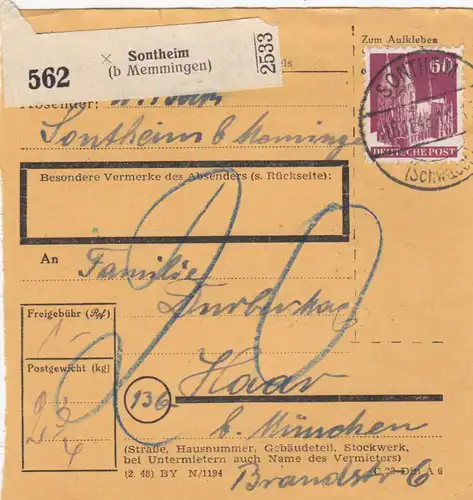 Zum Aufkleben
× Sontheim
(b Memmingen)
562
2533
els
Absender:
Sontheim b Memminge
60
DEUTSCHE POST
SONTHEIM
(Schwab
Besondere Vermerke des Absenders (s. Rückseite):
An
Familie
Haar
b. München
Freigebühr (Rpf)
Postgewicht (kg)
13b
(Straße, Hausnummer, Gebäudeteil, Stockwerk,
bei Untermietern auch Name des Vermieters)
(2. 48) BY N/1194
Din A 6
Brandstr 6